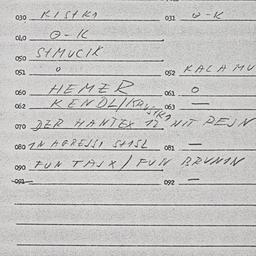 030 KISTKA 031 O-K
040 O-K
050 STMUCIK
051 O 052 KACAMU
060 HEMER 061 O
062 KENDL/KAUSTKA 063 —
070 DER HANTEX 12 MIT DEJN
080 IN AGRESSI STISL 081 —
090 FUN TAJX / FUN BRUNIN
091 092 —